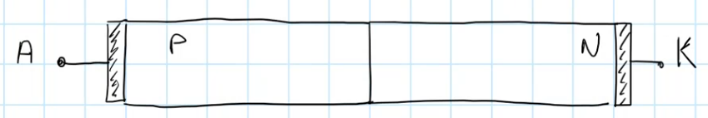 A P N K